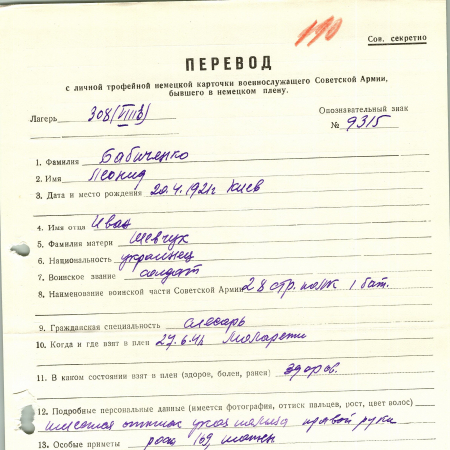 190
Сов. секретно
ПЕРЕВОД
с личной трофейной немецкой карточки военнослужащего Советской Армии,
бывшего в немецком плену.
Лагерь 308 (VIIIb)
Опознавательный знак
№ 9315
1. Фамилия Бабиченко
2. Имя Леонид
3. Дата и место рождения 20.4.1921г Киев
4. Имя отца Иван
5. Фамилия матери Шевчук
6. Национальность украинец
7. Воинское звание солдат
8. Наименование воинской части Советской Армии 28 стр. полк 1 бат.
9. Гражданская специальность слесарь
10. Когда и где взят в плен 27.6.41
11. В каком состоянии взят в плен (здоров, болен, ранен) здоров.
12. Подробные персональные данные (имеется фотография, оттиск пальцев, рост, цвет волос)
имеется оттиск указ пальца правой руки
13. Особые приметы рост 169,